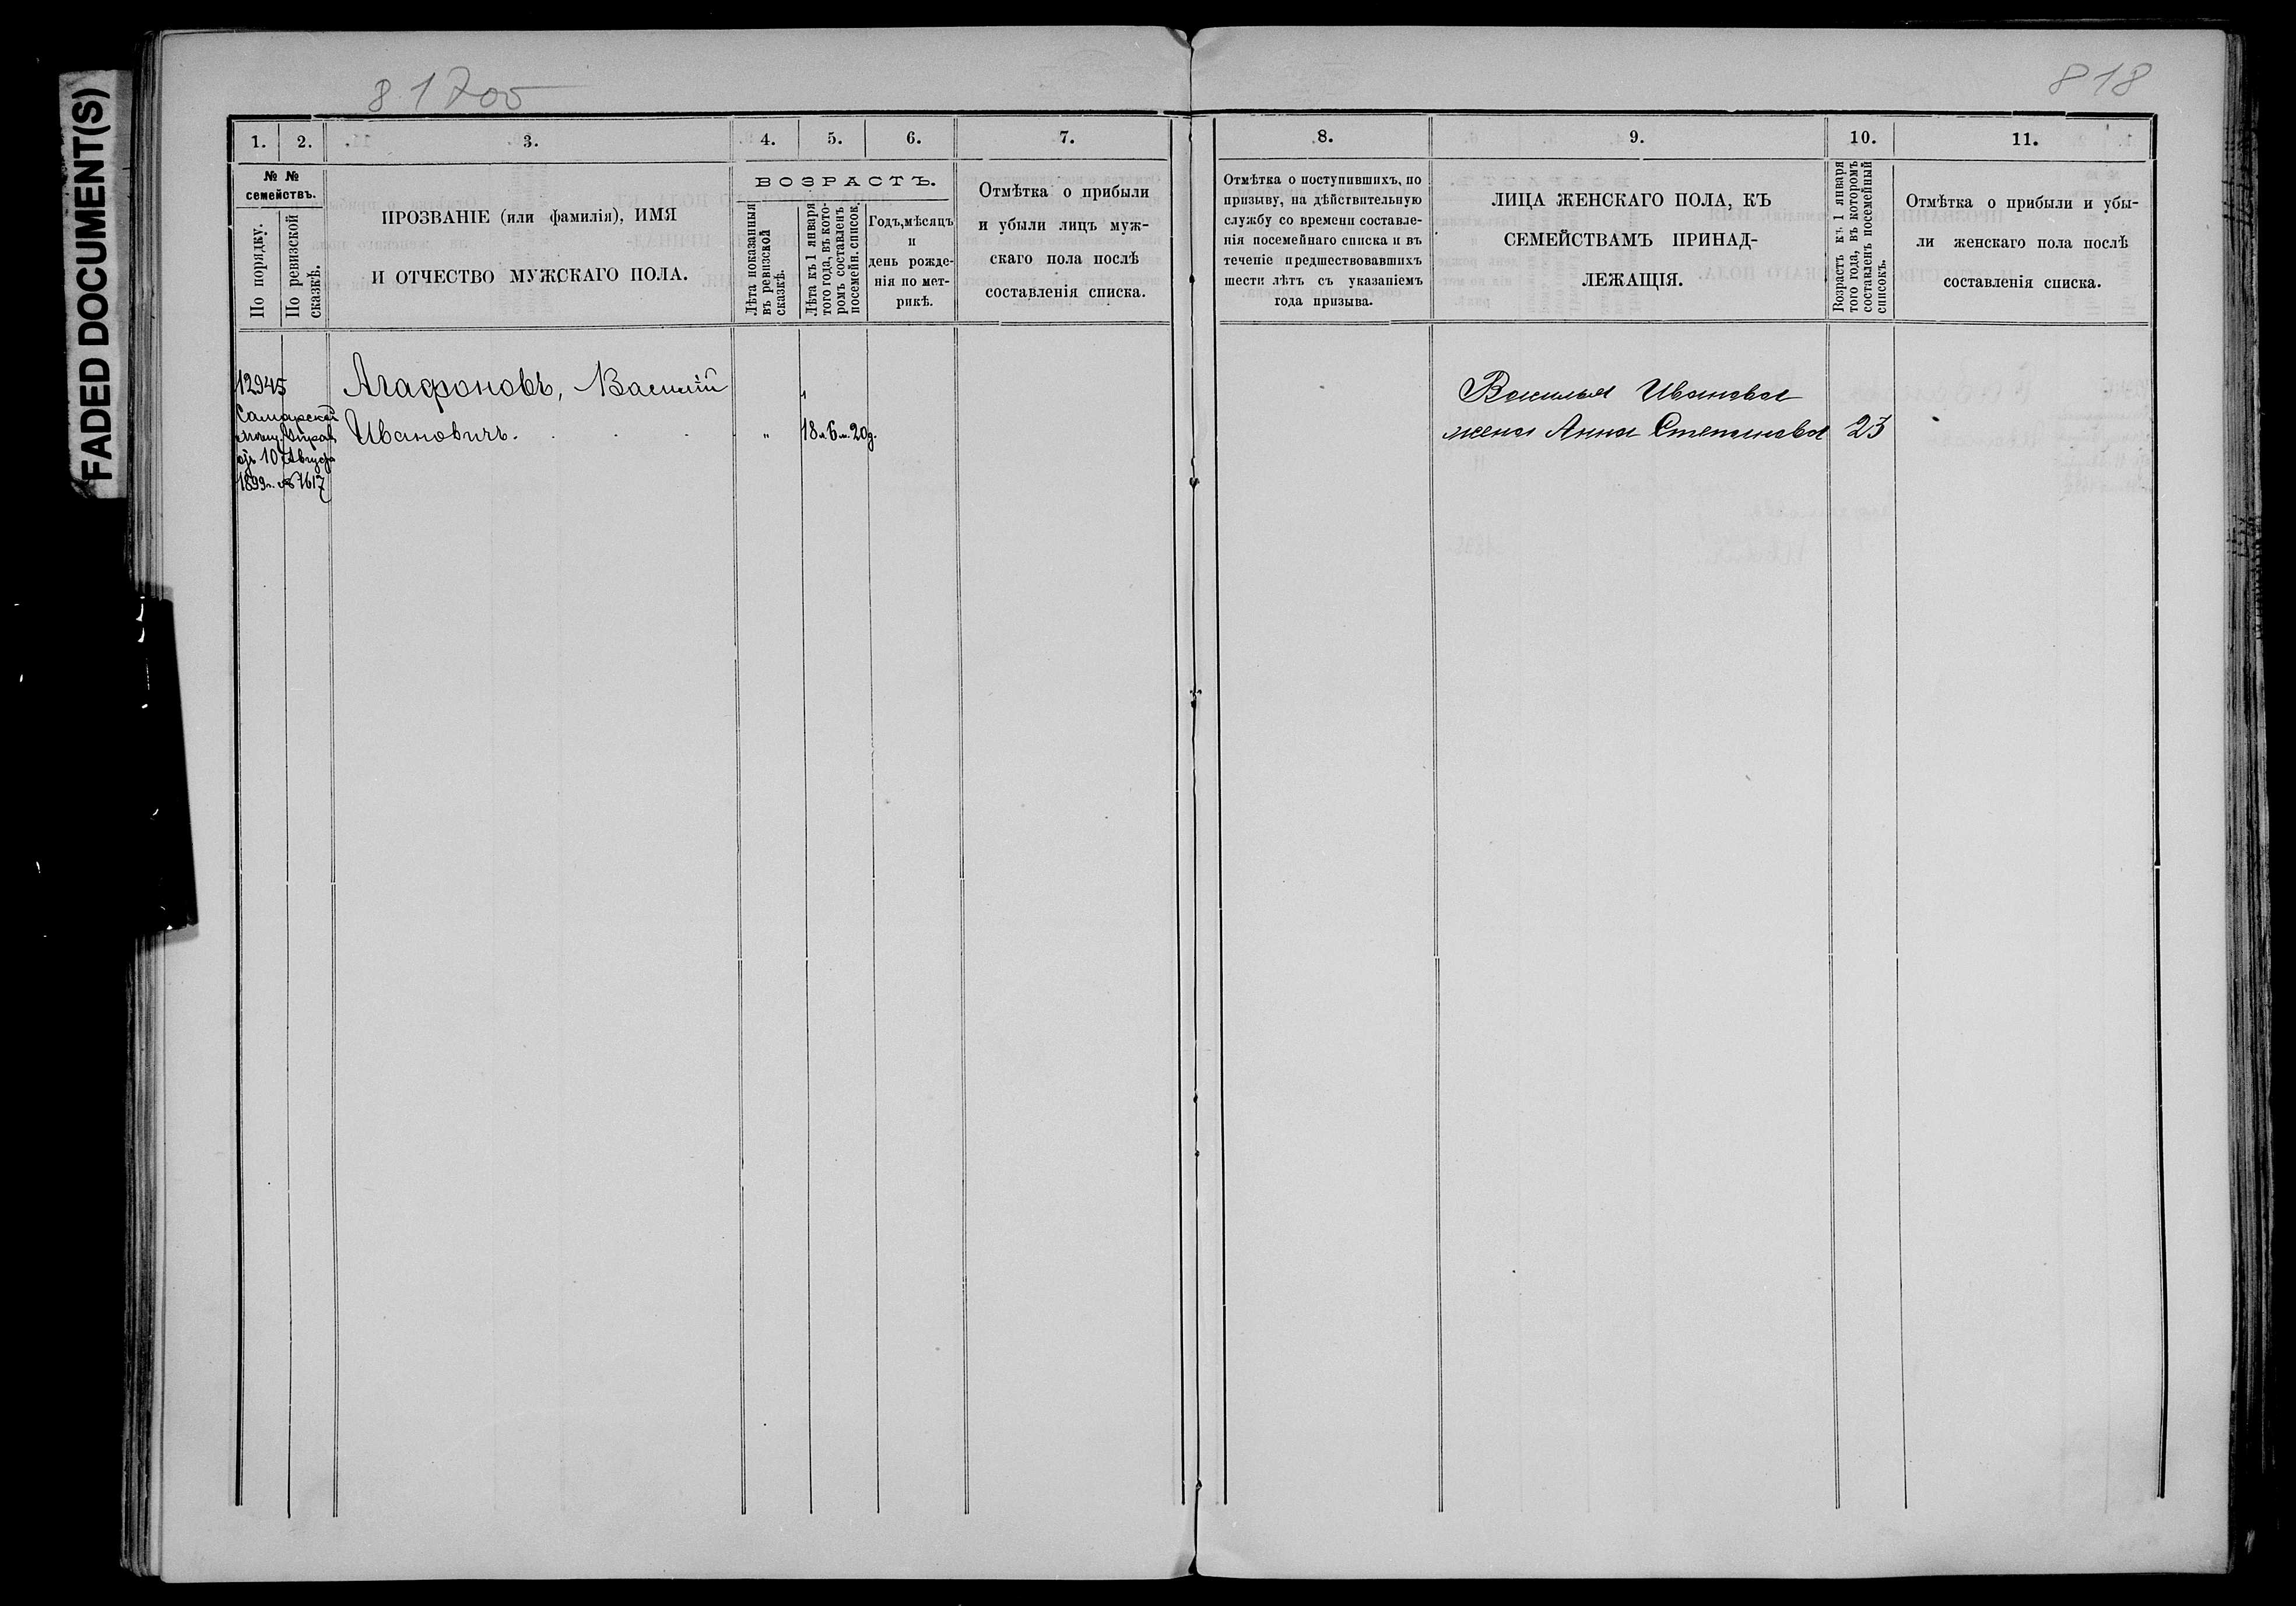 FADED DOCUMENT(S)
81700
818
1. 2. 3. 4. 5. 6. 7.
№ №
семействъ.
По порядку.
По ревизской
сказкѣ.
ПРОЗВАНІЕ (или фамилія), ИМЯ
И ОТЧЕСТВО МУЖСКАГО ПОЛА.
ВОЗРАСТЪ.
Лѣта показанныя
въ ревизской
сказкѣ.
Лѣта къ 1 января
того года, въ кото-
ромъ составленъ
посемейн. список.
Годъ, мѣсяцъ
и
день рожде-
нія по мет-
рикѣ.
Отмѣтка о прибыли
и убыли лицъ муж-
скаго пола послѣ
составленія списка.
8. 9. 10. 11.
Отмѣтка о поступившихъ, по
призыву, на дѣйствительную
службу со времени составле-
нія посемейнаго списка и въ
теченіе предшествовавшихъ
шести лѣтъ съ указаніемъ
года призыва.
ЛИЦА ЖЕНСКАГО ПОЛА, КЪ
СЕМЕЙСТВАМЪ ПРИНАД-
ЛЕЖАЩІЯ.
Возрастъ къ 1 января
того года, въ которомъ
составленъ посемейный
списокъ.
Отмѣтка о прибыли и убы-
ли женскаго пола послѣ
составленія списка.
12945
Самарской
мѣщ. Управ.
отъ 10 Августа
1899 г. № 7617
Агафоновъ, Василій
Ивановичъ.
"
18 л. 6 м. 20 д.
Василья Иванова
жена Анна Степанова 23